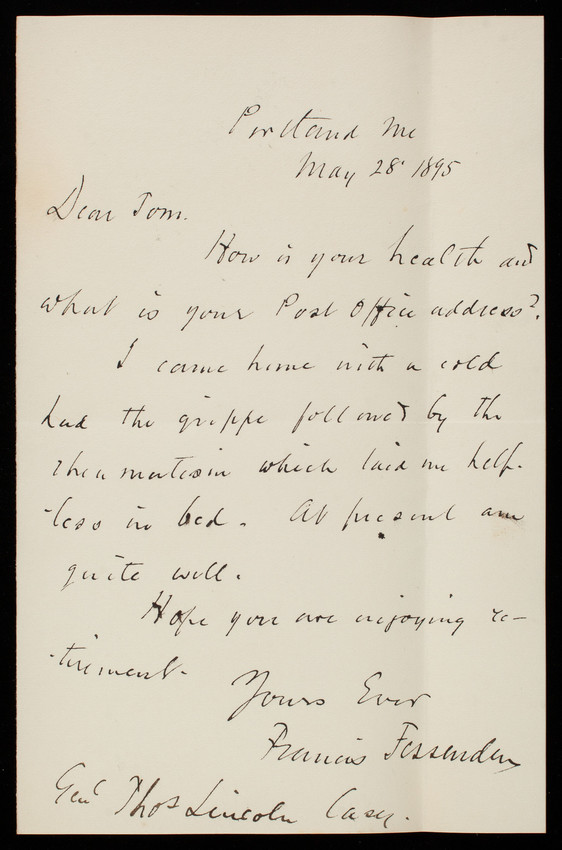 Portland Me
May 28' 1895
Dear Tom.
How is your health and
what is your Post Office address?.
I came home with a cold
had the grippe followed by the
rheumatism which laid me help-
-less in bed. At present am
quite well.
Hope you are enjoying re-
-tirement.
Yours Ever
Francis Fessenden
Genl Thos Lincoln Casey.